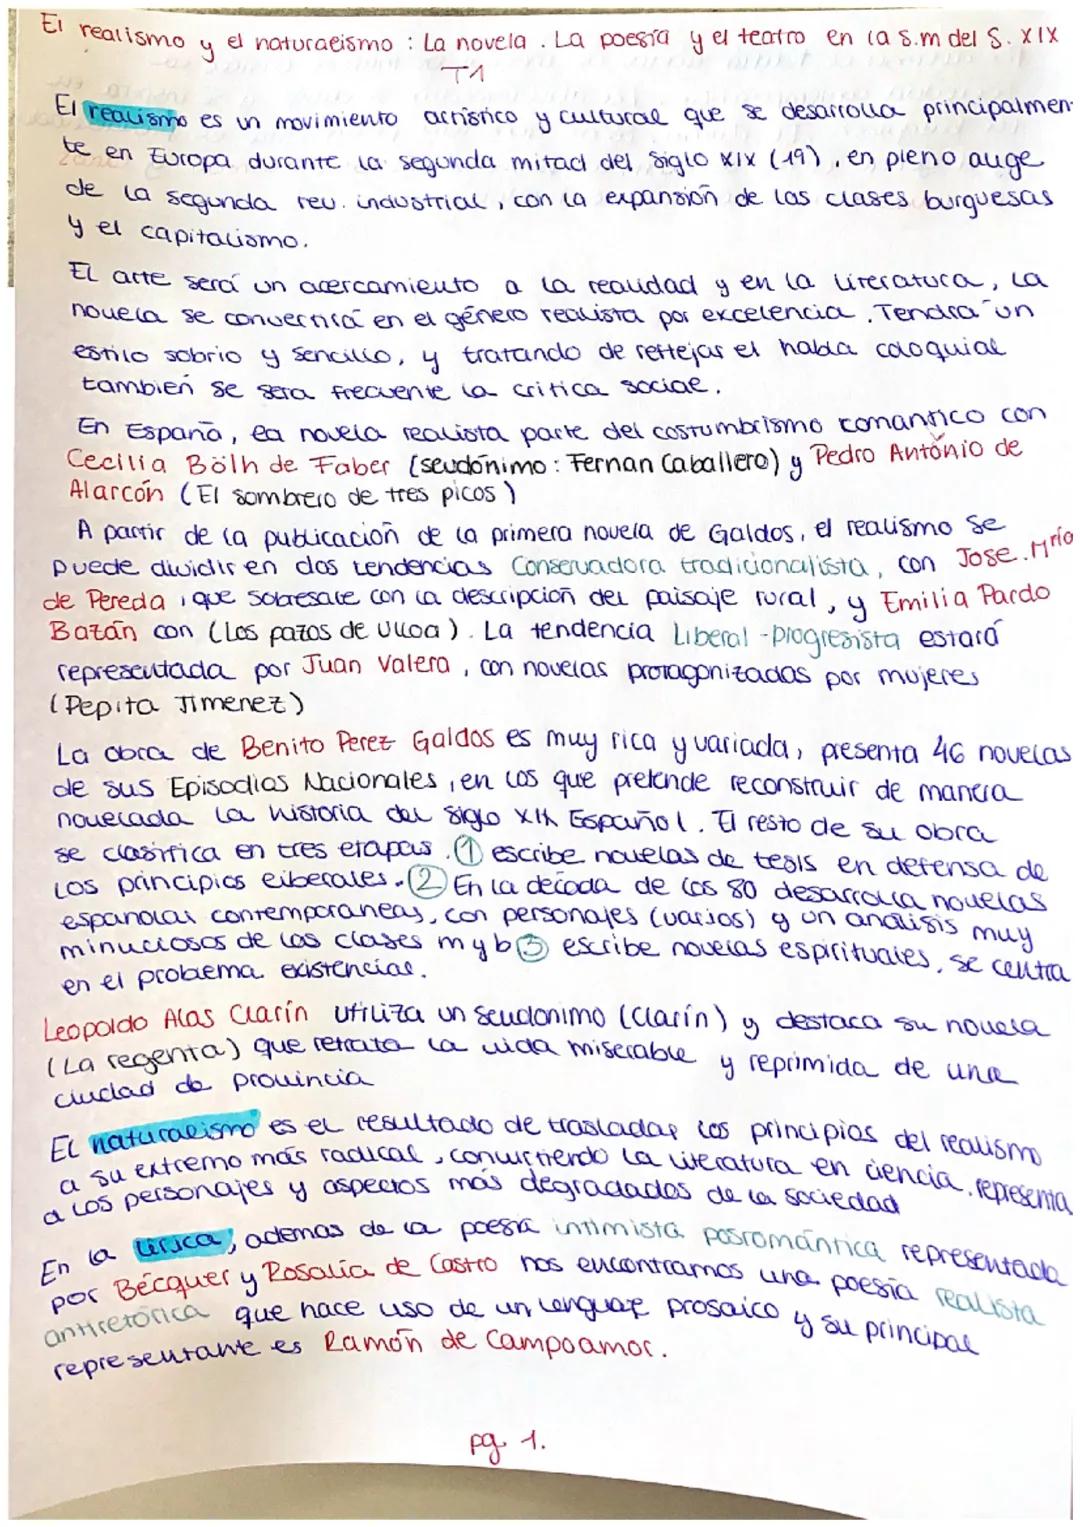 El realismo y el naturaeismo : La novela. La poesía y el teatro en la S.m del S. XIX
T1
El realismo es un movimiento artístico y cultural que se desarrolla principalmen-
te en Europa durante la segunda mitad del siglo XIX (19), en pleno auge
de la segunda rev. industrial, con la expansión de las clases burguesas
y el capitalismo.
El arte será un acercamiento a la realidad y en la literatura, la
novela se convertirá en el género realista por excelencia. Tendrá un
estilo sobrio y sencillo, y tratando de reflejar el habla coloquial
también se sera frecuente la critica social.
En España, la novela realista parte del costumbrismo romantico con
Cecilia Bölh de Faber (seudónimo: Fernan Caballero) y Pedro António de
Alarcón (El sombrero de tres picos)
A partir de la publicación de la primera novela de Galdos, el realismo se
puede dividir en dos tendencias Conservadora tradicionalista, con Jose. Mría
de Pereda, que sobresale con la descripción del paisaje rural, y Emilia Pardo
Bazán con (Los pazos de Ulloa). La tendencia Liberal-progresista estará
representada por Juan Valera, con novelas protagonizadas por mujeres
(Pepita Jimenez)
La obra de Benito Perez Galdos es muy rica y variada, presenta 46 novelas
de sus Episodios Nacionales, en los que pretende reconstruir de manera
novelada la historia del siglo XIX Español. El resto de su obra
se clasifica en tres etapas. ① escribe novelas de tesis en defensa de
los principios liberales. ② En la decada de los 80 desarrolla novelas
espanolas contemporaneas, con personajes (varios) y un analisis muy
minuciosos de las clases m y b ③ escribe novelas espirituales, se centra
en el problema existencial.
Leopoldo Alas Clarín utiliza un seudonimo (Clarín) y destaca su novela
(La regenta) que retrata la vida miserable y reprimida de una
ciudad de provincia
El naturalismo es el resultado de trasladar los principios del realismo
a su extremo más radical, convirtiendo la literatura en ciencia, representa
a los personajes y aspectos más degradados de la sociedad
En la lírica, ademas de la poesía intimista posromántica representada
por Bécquer y Rosalía de Castro nos encontramos una poesía realista
antiretórica que hace uso de un lenguaje prosaico y su principal
representante es Ramón de Campoamor.
pg 1.